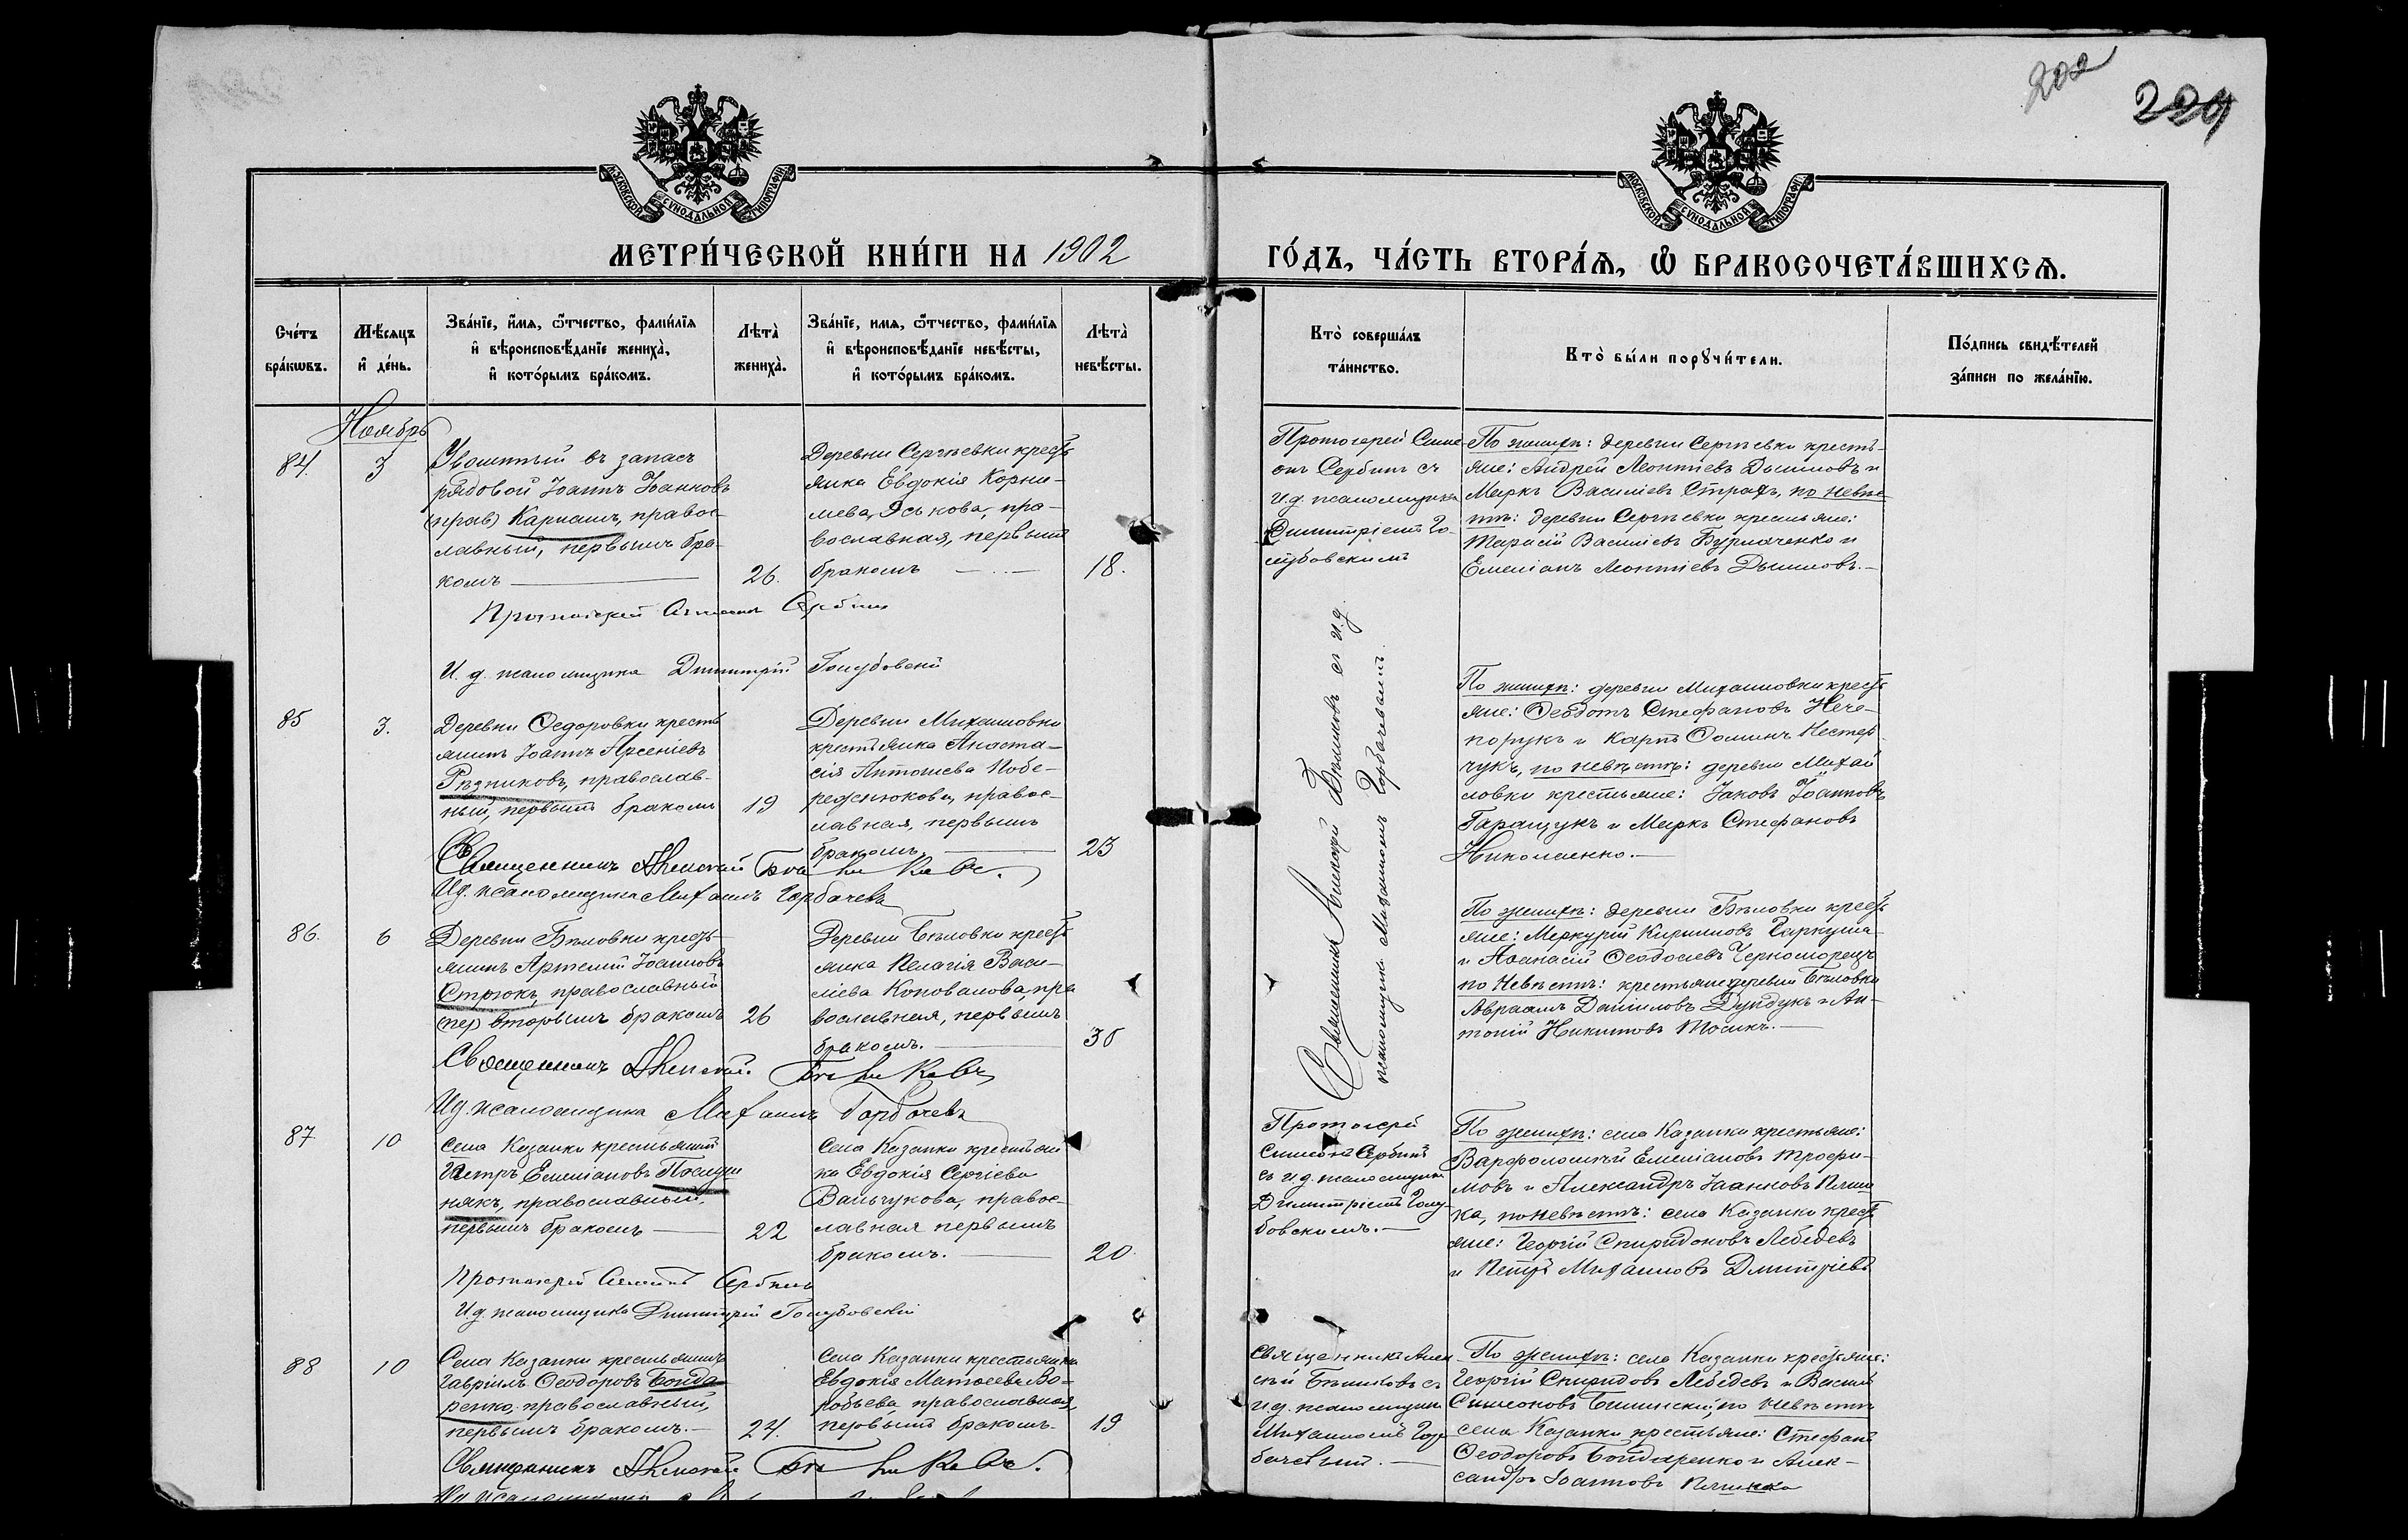 202
229
МОСКОВСКОЙ СѴНОДАЛЬНОЙ ТИПОГРАФІИ
МОСКОВСКОЙ СѴНОДАЛЬНОЙ ТИПОГРАФІИ
МЕТРИ́ЧЕСКОЙ КНИ́ГИ НА 1902
ГО́ДЪ, ЧА́СТЬ ВТОРА́Ѧ, Ѽ БРАКОСОЧЕТА́ВШИХСѦ.
Сче́тъ
бра́кѡвъ.
Мѣ́сяцъ
и҆ де́нь.
Зва́нїе, и҆́мѧ, ѻ҆́тчество, фами́лїѧ
и҆ вѣроисповѣ́данїе жениха̀,
и҆ кото́рымъ бра́комъ.
Лѣта̀
жениха̀.
Зва́нїе, имѧ, ѻ҆́тчество, фами́лїѧ
и҆ вѣроисповѣ́данїе невѣ́сты,
и҆ кото́рымъ бра́комъ.
Лѣта̀
невѣ́сты.
Кто̀ соверша́лъ
та́инство.
Кто̀ бы́ли порꙋчи́тели.
По́дпись свидѣ́телей
за́писи по жела́нїю.
Ноябрь
84.
3
Уволенный въ запасъ
рядовой Іоаннъ Іоанновъ
(прав) Карпашъ, правос-
лавный, первымъ бра-
комъ
26.
Деревни Сергѣевки кресть
янка Евдокія Корни-
лиева Яськова, пра-
вославная, первымъ
бракомъ
18.
Протоіерей Симе-
онъ Сербинъ съ
и.д. псаломщика
Димитріемъ Го-
лубовскимъ
По женихѣ: деревни Сергѣевки кресть-
яне: Андрей Леонтіевъ Дышловъ и
Маркъ Василіевъ Страхъ, по невѣс-
тѣ: деревни Сергѣевки крестьяне:
Тарасій Василіевъ Бурлаченко и
Емеліанъ Леонтіевъ Дышловъ.
Протоіерей Симеонъ Сербинъ
И. д. псаломщика Димитрій Голубовскій
85
3.
Деревни Ѳедоровки кресть
янинъ Іоаннъ Арсеніевъ
Рѣзниковъ, православ-
ный, первымъ бракомъ
19
Деревни Михайловки
крестьянка Анаста-
сія Антоніева Побе-
режнюкова, правос-
лавная, первымъ
бракомъ.
23
Священникъ Алексѣй Бѣликовъ съ и.д.
псаломщика Михаиломъ Горбачевымъ.
По женихѣ: деревни Михайловки кресть
яне: Ѳеодотъ Стефановъ Нече-
порукъ и Карпъ Ѳоминъ Нестер-
чукъ, по невѣстѣ: деревни Михай
ловки крестьяне: Іаковъ Іоанновъ
Таращукъ и Маркъ Стефановъ
Николаенко.
Священникъ Алексѣй Бѣликовъ.
И.д. псаломщика Михаилъ Горбачевъ
86.
6
Деревни Бѣловки кресть
янинъ Артемій Іоанновъ
Стрюкъ, православный
(пер) вторымъ бракомъ
26
Деревни Бѣловки кресть
янка Пелагія Васи-
ліева Коновалова, пра
вославная, первымъ
бракомъ.
30
По женихѣ: деревни Бѣловки кресть
яне: Меркурій Кирилловъ Гаркуша
и Аѳанасій Ѳеодосіевъ Черноморецъ
по Невѣстѣ: крестьяне деревни Бѣловки
Авраамъ Даніиловъ Дундукъ и Ан-
тоній Никитовъ Мосикъ.
Священникъ Алексѣй Бѣликовъ
И.д. псаломщика Михаилъ Горбачевъ
87
10
Села Казанки крестьянинъ
Петръ Емеліановъ
няхъ, православный,
первымъ бракомъ
22
Села Казанки крестьян
ка Евдокія Сергіева
Вальчукова, правос-
лавная первымъ
бракомъ.
20.
Протоіерей
Симеонъ Сербинъ
съ и.д. псаломщика
Димитріемъ Голу-
бовскимъ.
По женихѣ: села Казанки крестьяне:
Варѳоломѣй Емеліановъ Трофи-
мовъ и Александръ Іоанновъ
ка, по невѣстѣ: села Казанки кресть
яне: Георгій Спиридоновъ Лебедевъ
и Петръ Михаиловъ Дмитріевъ
Протоіерей Симеонъ Сербинъ
И.д. псаломщика Димитрій Голубовскій
88
10
Села Казанки крестьянинъ
Гавріилъ Ѳеодоровъ Бонда-
ренко, православный,
первымъ бракомъ.
24.
Села Казанки крестьянка
Евдокія Матѳеева Во-
робьева православная,
первымъ бракомъ.
19
Священникъ Алек
сѣй Бѣликовъ съ
и.д. псаломщика
Михаиломъ Гор-
бачевымъ.
По женихѣ: села Казанки крестьяне:
Георгій Спиридовъ Лебедевъ и Василій
Симеоновъ Билинскій, по невѣстѣ
села Казанки крестьяне: Стефанъ
Ѳеодоровъ Бондаренко и Алек-
сандръ Іоанновъ
Священникъ Алексѣй Бѣликовъ.